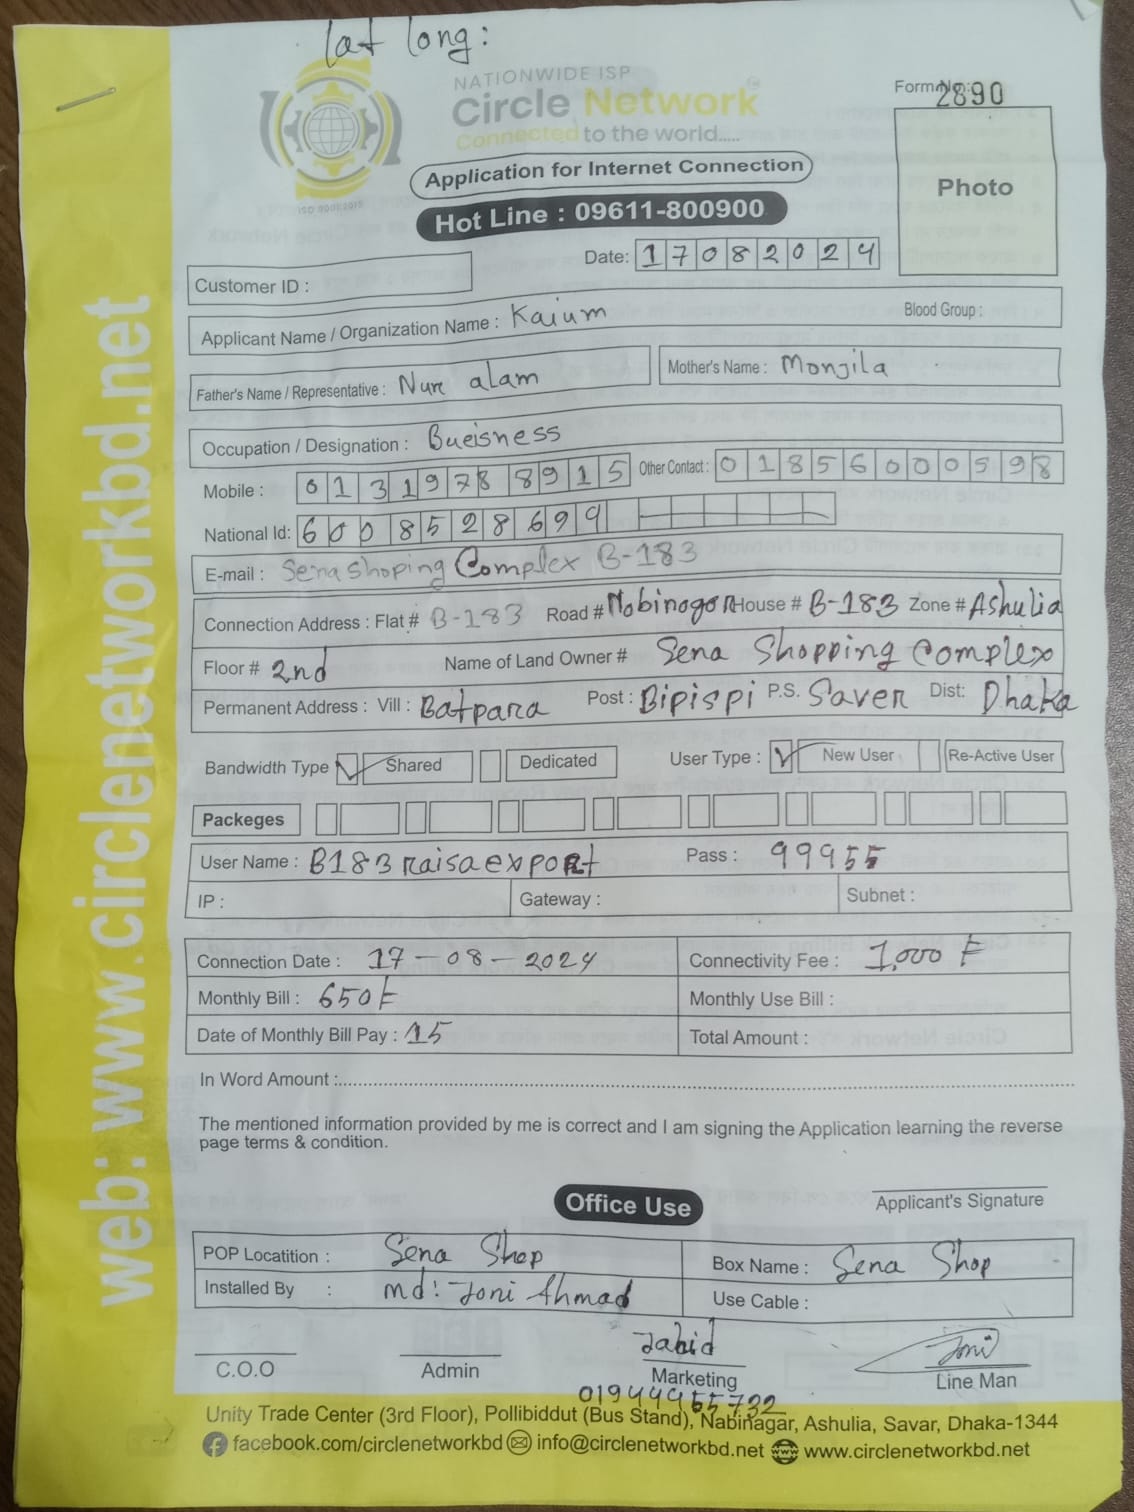 lat long:
NATIONWIDE ISP
Circle Network
Connected to the world.....
ISO 9001:2015
Form No: 2890
Photo
Application for Internet Connection
Hot Line : 09611-800900
Date: 17082024
Customer ID :
Applicant Name / Organization Name : Kaium Blood Group :
Father's Name / Representative : Nur alam Mother's Name : Monjila
Occupation / Designation : Bueisness
Mobile : 01319788915 Other Contact : 01856000598
National Id: 6008528699
E-mail : Sena Shoping Complex B-183
Connection Address : Flat # B-183 Road # Nobinogor House # B-183 Zone # Ashulia
Floor # 2nd Name of Land Owner # Sena Shopping Complex
Permanent Address : Vill : Batpara Post : Bipispi P.S. Saver Dist: Dhaka
Bandwidth Type Shared Dedicated User Type : New User Re-Active User
Packeges
User Name : B183raisaexport Pass : 99955
IP : Gateway : Subnet :
Connection Date : 17-08-2024 Connectivity Fee : 1,000 ৳
Monthly Bill : 650৳ Monthly Use Bill :
Date of Monthly Bill Pay : 15 Total Amount :
In Word Amount :
The mentioned information provided by me is correct and I am signing the Application learning the reverse
page terms & condition.
Applicant's Signature
Office Use
POP Locatition : Sena Shop Box Name : Sena Shop
Installed By : md: Joni Ahmad Use Cable :
Jahid Joni
C.O.O Admin Marketing Line Man
01944955732
Unity Trade Center (3rd Floor), Pollibiddut (Bus Stand), Nabinagar, Ashulia, Savar, Dhaka-1344
facebook.com/circlenetworkbd info@circlenetworkbd.net www.circlenetworkbd.net
web: www.circlenetworkbd.net